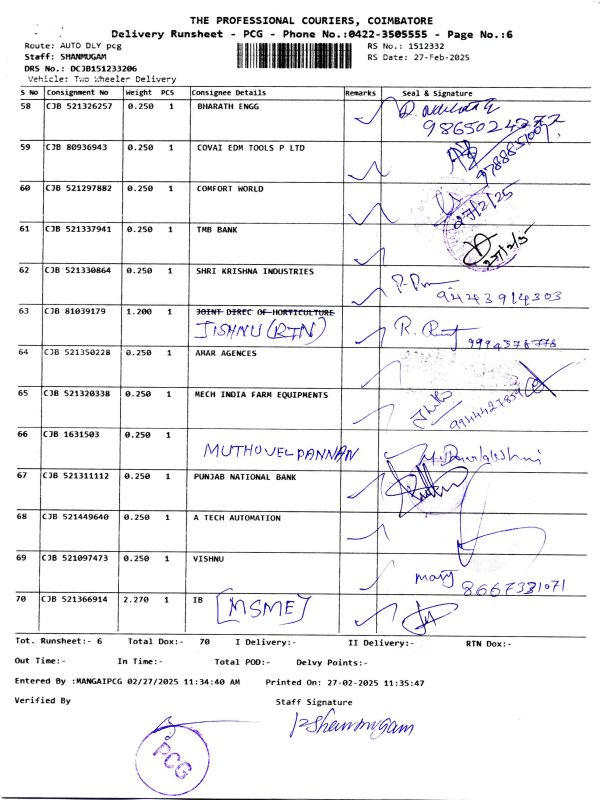 THE PROFESSIONAL COURIERS, COIMBATORE
Delivery Runsheet - PCG - Phone No.:0422-3505555 - Page No.:6
Route: AUTO DLY pcg RS No.: 1512332
Staff: SHANMUGAM RS Date: 27-Feb-2025
DRS No.: DCJB151233206
Vehicle: Two Wheeler Delivery
S No Consignment No Weight PCS Consignee Details Remarks Seal & Signature
58 CJB 521326257 0.250 1 BHARATH ENGG
59 CJB 80936943 0.250 1 COVAI EDM TOOLS P LTD
60 CJB 521297882 0.250 1 COMFORT WORLD 27/2/25
61 CJB 521337941 0.250 1 TMB BANK 27/2/25
62 CJB 521330864 0.250 1 SHRI KRISHNA INDUSTRIES 9443914303
63 CJB 81039179 1.200 1 JOINT DIREC OF HORTICULTURE
JISHNU (RTN) 9994378778
64 CJB 521350228 0.250 1 AMAR AGENCES
65 CJB 521320338 0.250 1 MECH INDIA FARM EQUIPMENTS 9944427859
66 CJB 1631503 0.250 1
MUTHUVELPANNAN
67 CJB 521311112 0.250 1 PUNJAB NATIONAL BANK
68 CJB 521449640 0.250 1 A TECH AUTOMATION
69 CJB 521097473 0.250 1 VISHNU
mary 8667331071
70 CJB 521366914 2.270 1 IB [MSME]
Tot. Runsheet:- 6 Total Dox:- 70 I Delivery:- II Delivery:- RTN Dox:-
Out Time:- In Time:- Total POD:- Delvy Points:-
Entered By :MANGAIPCG 02/27/2025 11:34:40 AM Printed On: 27-02-2025 11:35:47
Verified By Staff Signature
Shanmugam
PCG